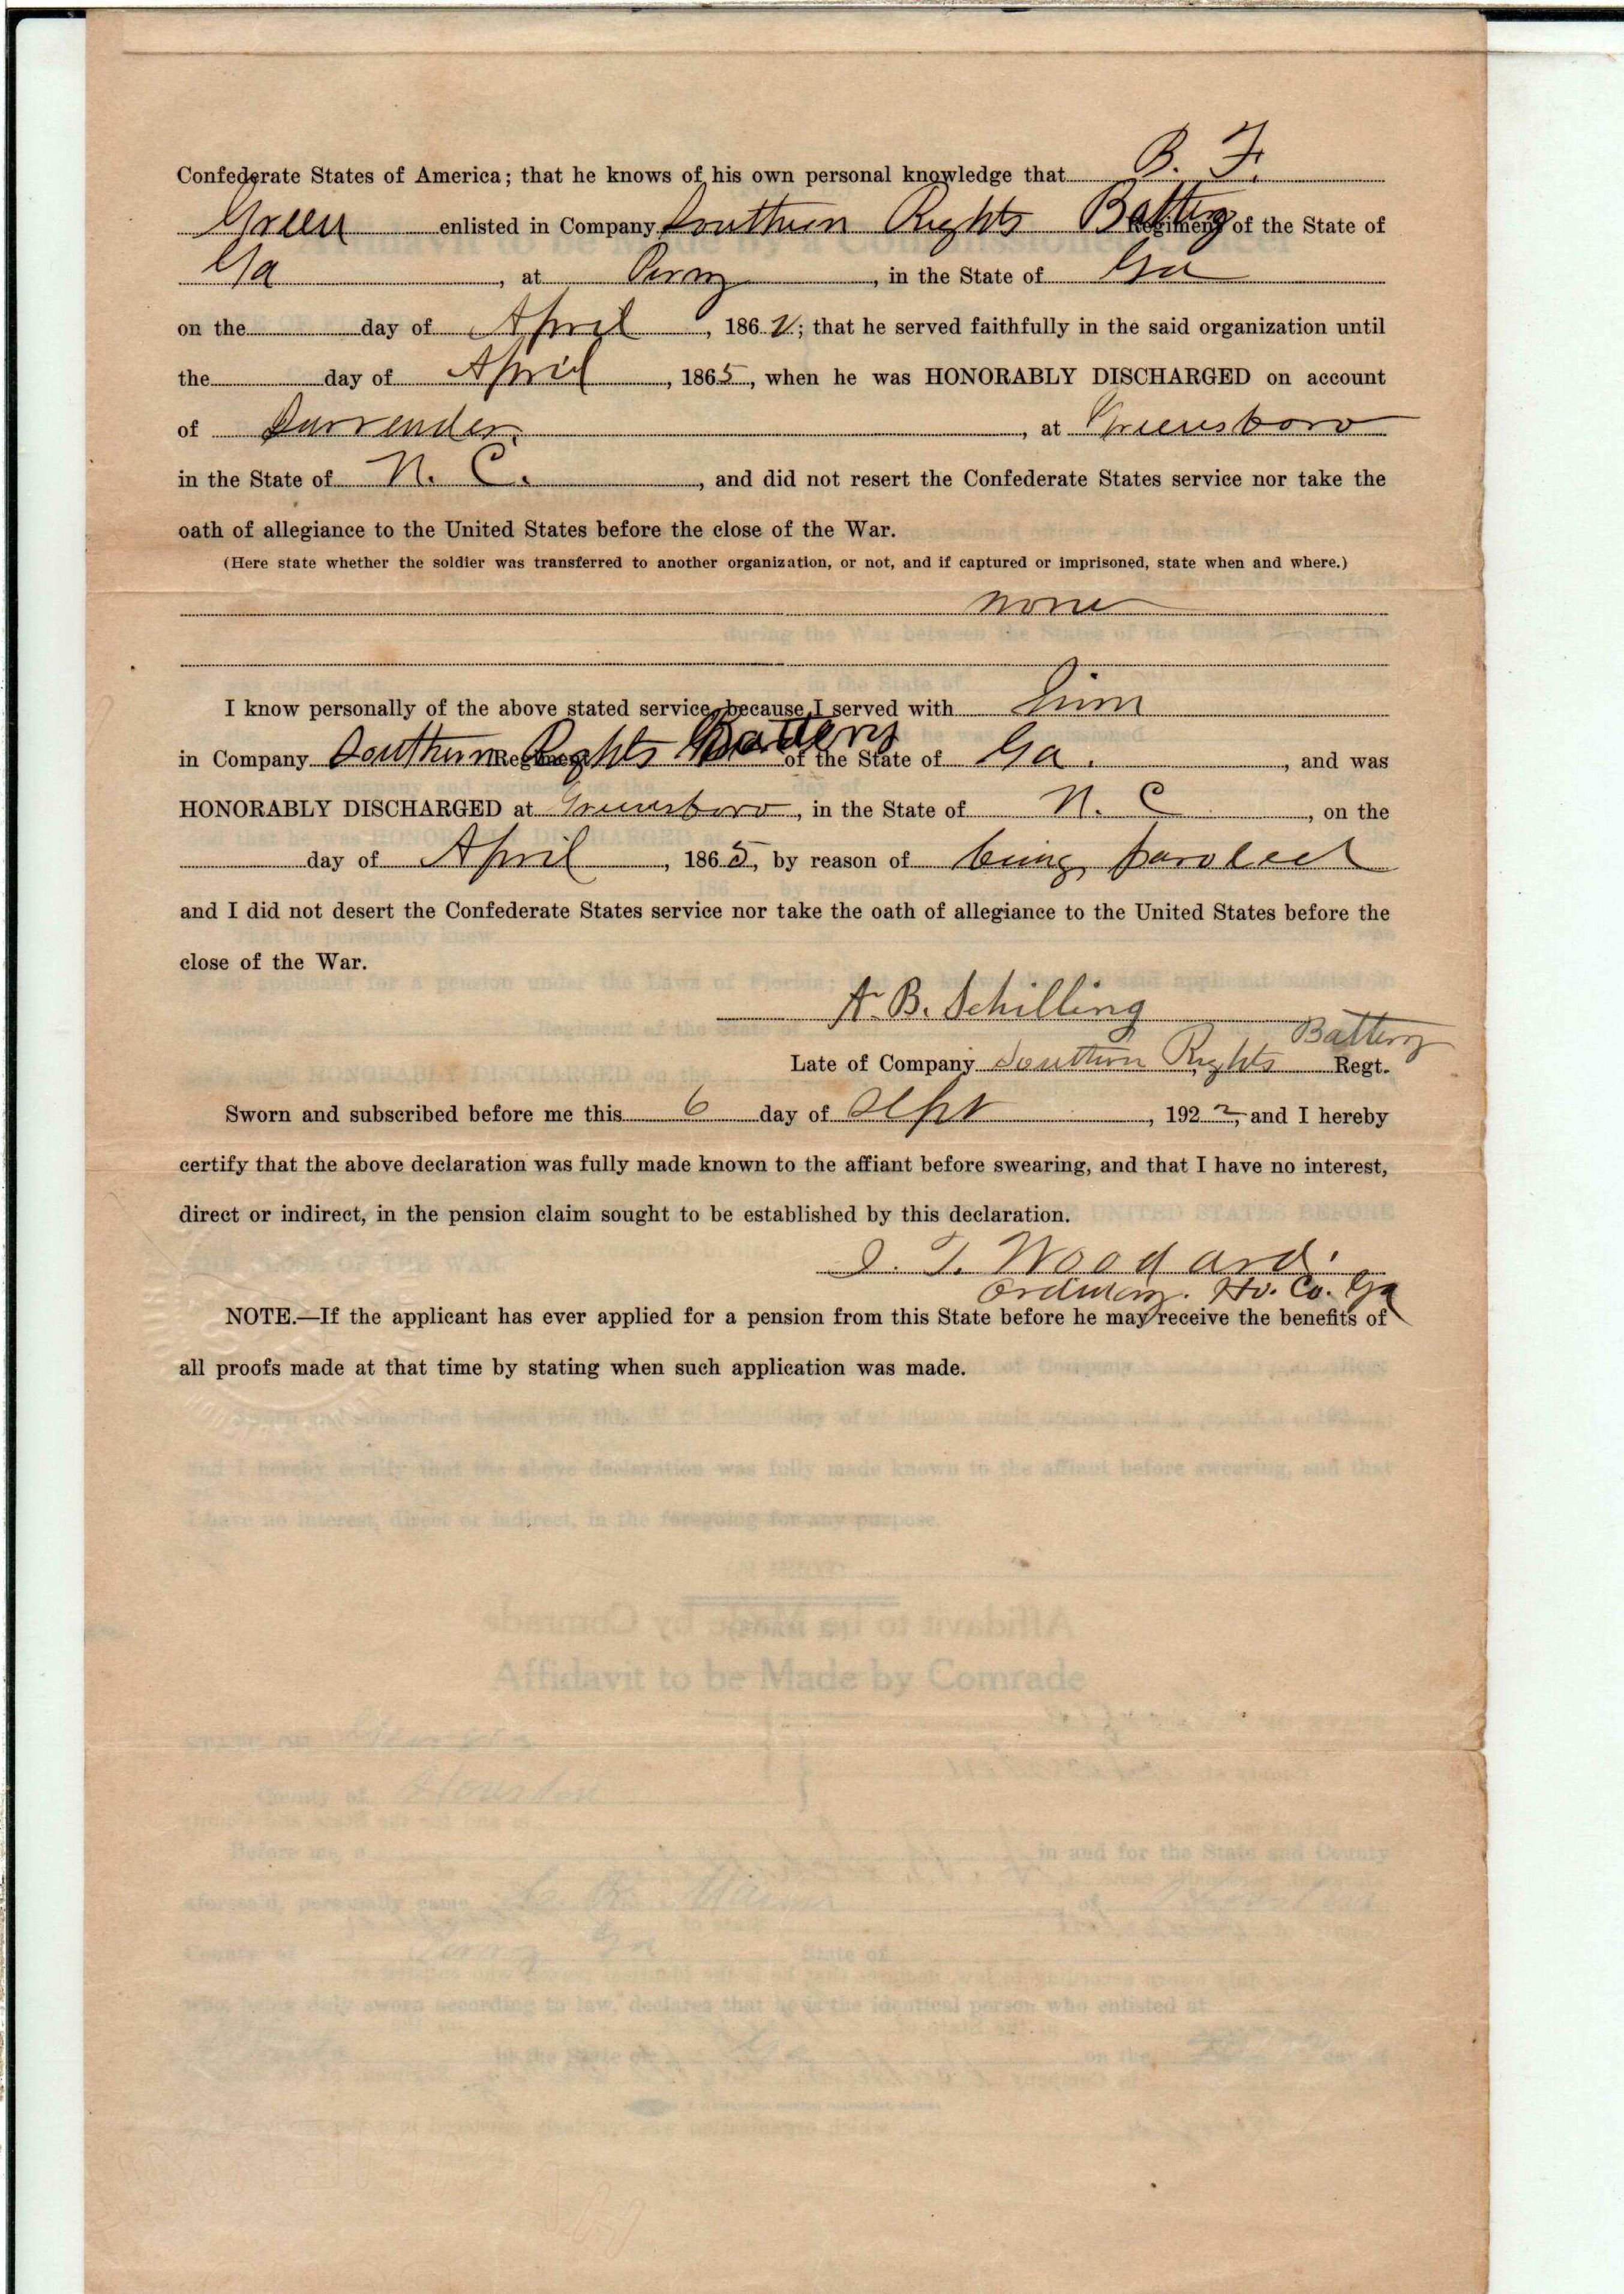 Confederate States of America; that he knows of his own personal knowledge that B. F.
Green enlisted in Company Southern Rights Battery Regiment of the State of
Ga, at Perry, in the State of Ga
on the day of April, 1862; that he served faithfully in the said organization until
the day of April, 1865, when he was HONORABLY DISCHARGED on account
of Surrender, at Greensboro
in the State of N. C., and did not resert the Confederate States service nor take the
oath of allegiance to the United States before the close of the War.
(Here state whether the soldier was transferred to another organization, or not, and if captured or imprisoned, state when and where.)
none
I know personally of the above stated service, because I served with him
in Company Southern Rights Battery of the State of Ga., and was
HONORABLY DISCHARGED at Greensboro, in the State of N. C, on the
day of April, 1865, by reason of being paroled
and I did not desert the Confederate States service nor take the oath of allegiance to the United States before the
close of the War.
A. B. Schilling
Late of Company Southern Rights Battery Regt.
Sworn and subscribed before me this 6 day of Sept, 1922, and I hereby
certify that the above declaration was fully made known to the affiant before swearing, and that I have no interest,
direct or indirect, in the pension claim sought to be established by this declaration.
Woodard
Ordinary. Ho. Co. Ga
NOTE.—If the applicant has ever applied for a pension from this State before he may receive the benefits of
all proofs made at that time by stating when such application was made.
Affidavit to be Made by Comrade